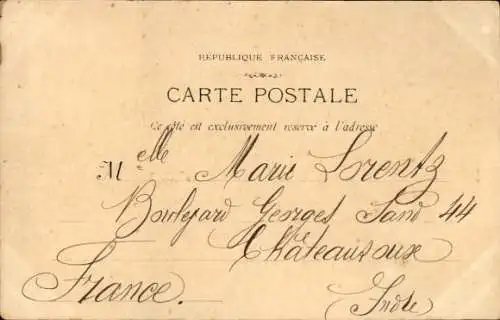 RÉPUBLIQUE FRANÇAISE
CARTE POSTALE
Ce côté est exclusivement réservé à l'adresse
Melle Marie Lorentz
Boulevard Georges Sand 44
Châteauroux
France. (Indre)